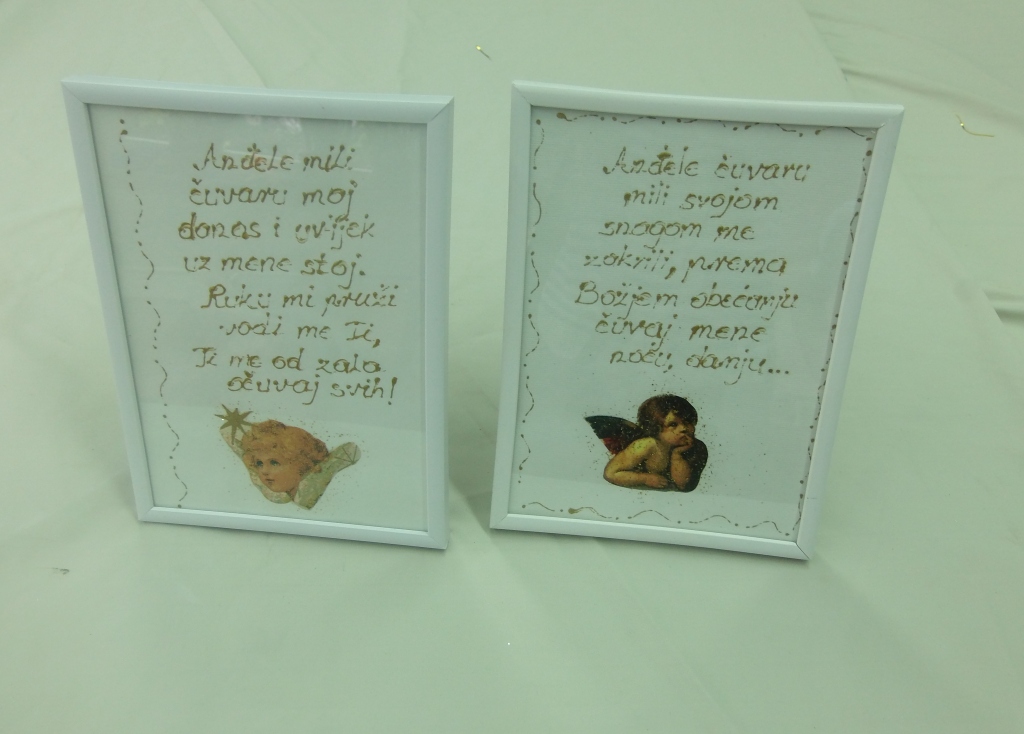 Anđele mili
čuvaru moj
danas i uvijek
uz mene stoj.
Ruku mi pruži
vodi me Ti,
Ti me od zala
očuvaj svih!
Anđele čuvaru
mili svojom
snagom me
zakrili, prema
Božjem obećanju
čuvaj mene
noću, danju...